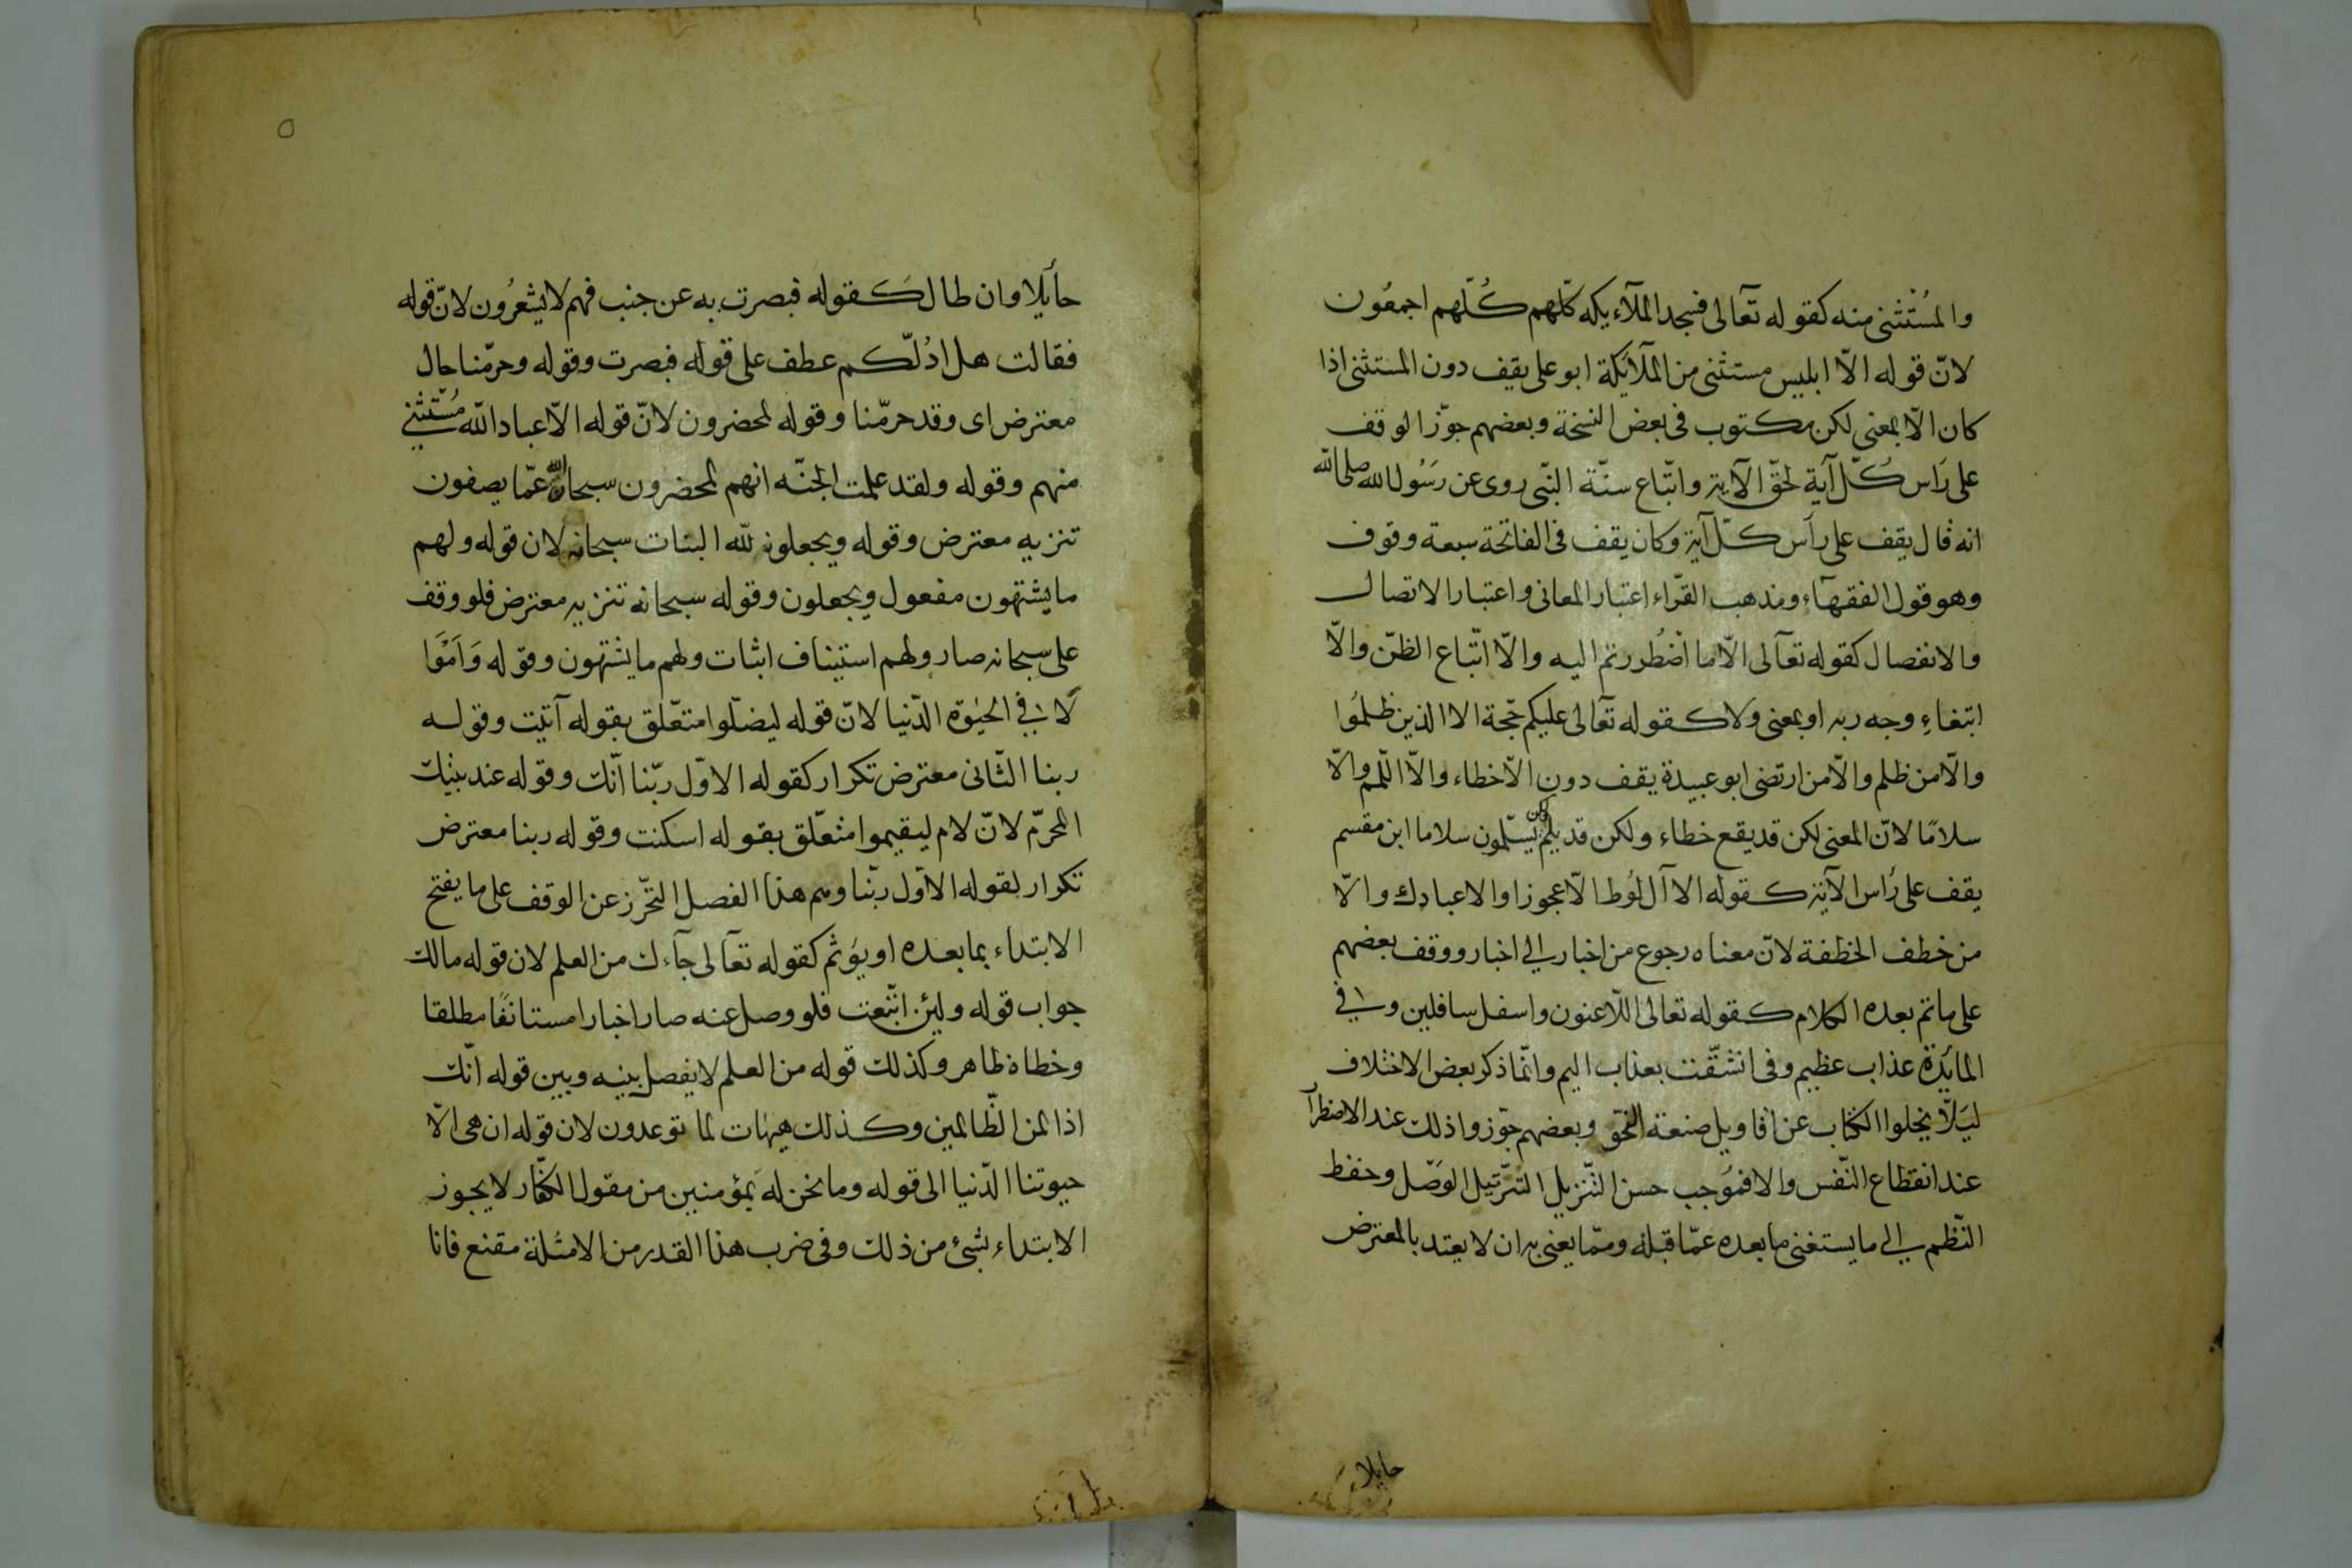 والمُسْتثنى منه كقوله تعآلى فسجد الملآءيكه كلّهم كُلّهم اجمعُون
لانّ قوله الاّ ابليس مستثنى من الملآئكة ابو على يقف دون المستثنى اذا
كان الاّ بمعنى لكن مكتوب فى بعض النسخة وبعضهم جوّز الوقف
على رَاس كُلّ آية لحقّ الآية واتّباع سنّة النّبى روى عن رَسُول الله صلى الله
انه قال يقف على رأس كلّ آية وكان يقف فى الفاتحة سبعة وقوف
وهو قول الفقهآء ومذهب القرّاء اعتبار المعانى واعتبار الاتصال
والانفصال كقوله تعآلى الاّ ما اضْطُررتم اليه والاّ اتّباع الظنّ والاّ
ابتغاءِ وجه ربه او بمعنى ولا كقوله تعآلى عليكم حّجة الا الذين ظلمُوا
والاّ من ظلم والاّ من ارتضى ابو عبيدة يقف دون الاّ خطاء والاّ اللّمم والاّ
سلامًا لانّ المعنى لكن قد يقع خطاء ولكن قد يلمّ ولكن يسّلمون سلاما ابن مقسم
يقف على رأس الآية كقوله الا آل لُوط الاّ عجوزا والا عبادك والاّ
من خطف الخطفة لانّ معناه رجوع من اخبار الى اخبار ووقف بعضهم
على ما تم بعده الكلام كقوله تعالى اللّاعنون واسفل سافلين و لا فى
المائدة عذاب عظيم وفى انشّقت بعذاب اليم وانّما ذكر بعض الاختلاف
ليَلاّ يخلوا الكتاب عن اقاويل صنعة النحّو وبعضهم جوّزوا ذلك عند الاضطرآ
عند انقطاع النّفس والا فمُوجب حسن التّنزيل التّرتيل الوَصّل وحفظ
النّظم الى ما يستغنى ما بعده عمّا قبله وممّا يعنى به ان لا يعتد بالمعترض
حايلا
حأيلا وان طال كَقوله فبصرت به عن جنب فهم لا يشعرُون لانّ قوله
فقالت هل ادُلّكم عطف على قوله فبصرت وقوله وحرّمنا حال
معترض اى وقد حرمّنا وقوله لمحضرون لانّ قوله الاّ عباد الله مُسْتثنى
منهم وقوله ولقد علمت الجنّه انهم لمحضرون سبحان الله عمّا يصفون
تنزيه معترض وقوله ويجعلون لله البنات سبحانه لان قوله ولهم
ما يشتهون مفعول ويجعلون وقوله سبحانه تنزيه معترض فلو وقف
على سبحانه صار ولهم استيناف اثبات ولهم ما يشتهون وقوله وَاَمْوَا
لًا فى الحيٰوة الدّنيا لانّ قوله ليضلّوا متعّلق بقوله آتيت وقوله
ربنا الثّانى معترض تكرار كقوله الاوّل ربّنا انّك وقوله عند بيتك
المحرّم لانّ لام ليقيموا متعّلق بقوله اسكنت وقوله ربنا معترض
تكرار لقوله الاوّل ربّنا ومم هذا الفصل التحّرز عن الوقف على ما يفتح
الابتداء بما بعده او يوَثم كقوله تعآلى جآءك من العلم لان قوله مالك
جواب قوله ولئن اتّبعت فلو وصل عنه صار اخبارا مستانفًا مطلقا
وخطاه ظاهر وكذلك قوله من العلم لا يفصل بينه وبين قوله انّك
اذا لمن الظّالمين وكذلك هيهات لما توعدون لان قوله ان هى الاّ
حيوتنا الدّنيا الى قوله وما نحن له بمؤمنين من مقول الكفّار لا يجوز
الابتداء بشئ من ذلك وفى ضرب هذا القدر من الامثلة مقنع فانا